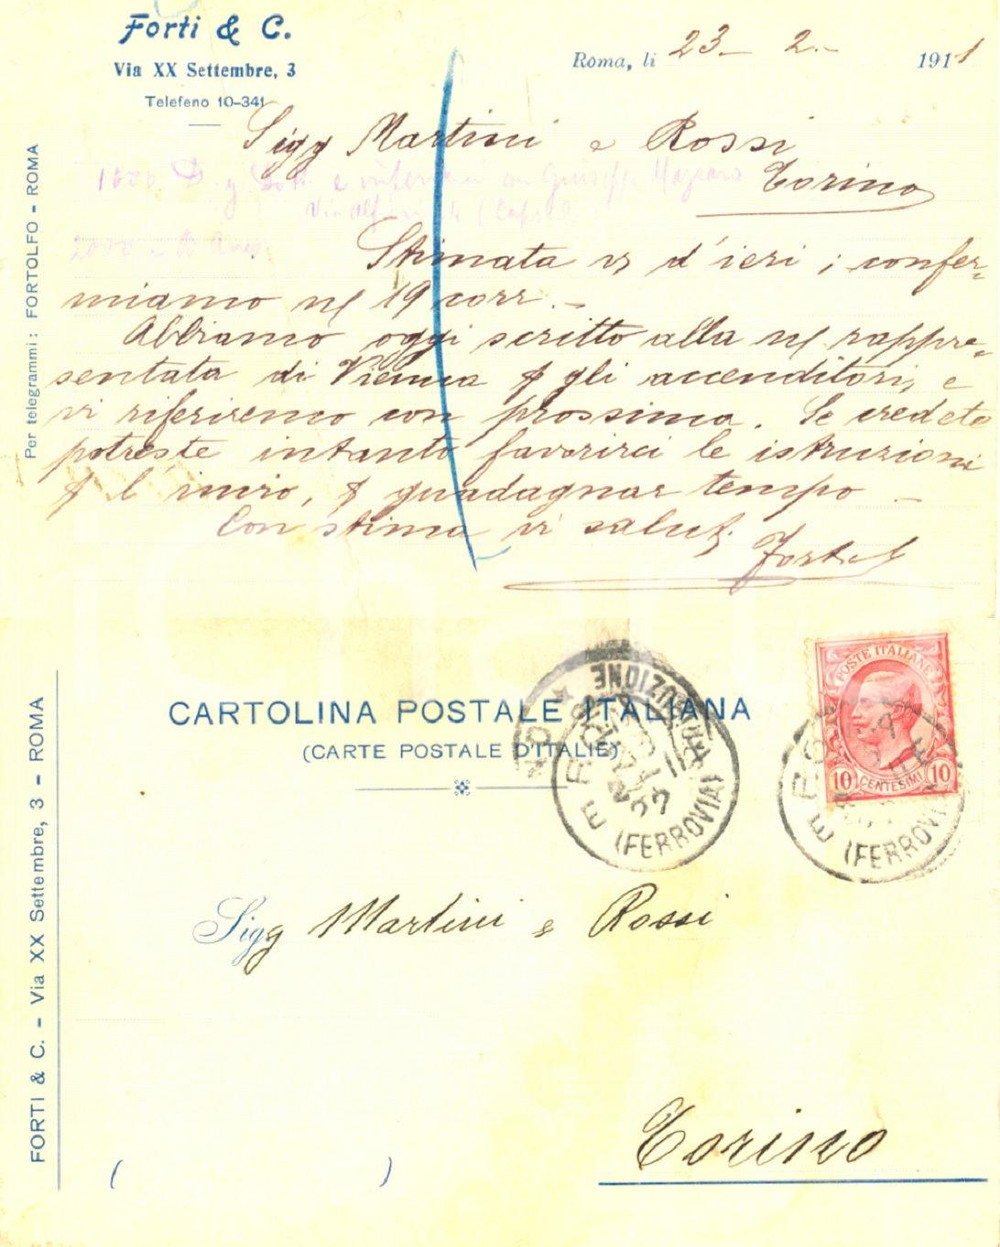 Forti & C.
Via XX Settembre, 3
Telefeno 10-341
Roma, li 23 - 2 - 1911
Per telegrammi: FORTOLFO - ROMA
Sigg Martini e Rossi
Torino
Stimata vs d'ieri; confer-
miamo ns 19 corr. -
Abbiamo oggi scritto alla ns rappre-
sentata di Vienna p gli accenditori, e
vi riferiremo con prossima. Se credete
potreste intanto favorirci le istruzioni
p l'invio, p guadagnar tempo -
Con stima vi salut.
CARTOLINA POSTALE ITALIANA
(CARTE POSTALE D'ITALIE)
FORTI & C. - Via XX Settembre, 3 - ROMA
POSTE ITALIANE
10 CENTESIMI 10
(FERROVIA)
(FERROVIA)
Sigg Martini e Rossi
Torino
( )